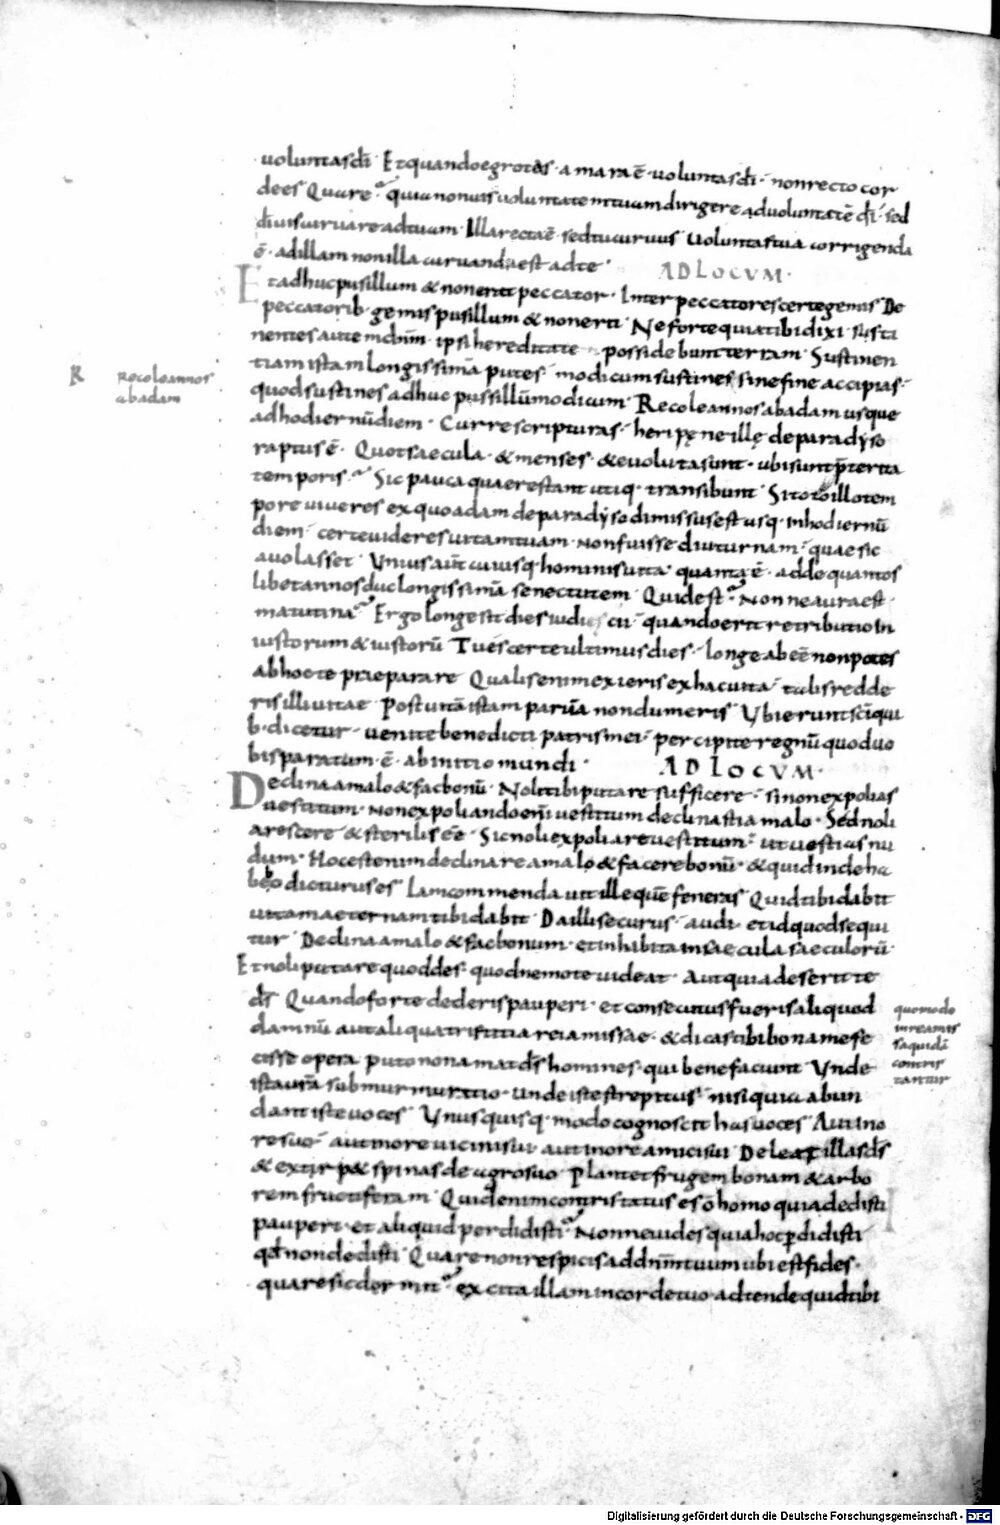 uoluntas dī. Et quando egrotas. amara ē uoluntas dī. non recto cor
de es. Quare? quia non uis uoluntatem tuam dirigere ad uoluntatē dī. sed
dī uis curuare ad tuam. Illa recta ē. sed tu curuus. Uoluntas tua corrigenda
ē. ad illam non illa curuanda est ad te. AD LOCVM.
Et adhuc pusillum & non erit peccator. Inter peccatores certe gemis De
peccatorib. gemis pusillum & non erit. Ne forte quia tibi dixi. susti
nentes autem dn̄m. ipsi hereditate possidebunt terram. Sustinen
tiam istam longissimā putes. modicum sustines. sine fine accipias.
quod sustines adhuc pussillū modicum. Recole annos ab adam usque
ad hodiernū diem. Curre scripturas. heri pęne ille de paradyso
raptus ē. Quot saecula. & menses. & euoluta sunt. ubi sunt p̄terita
tempora? Sic pauca quae restant utiq. transibunt. Si toto illo tem
pore uiueres ex quo adam de paradyso dimissus est usq. in hodiernū
diem. certe uideres uitam tuam. non fuisse diuturnam. quae sic
auolasset. Unius aut̄ cuiusq. hominis uita quanta ē. adde quantos
libet annos duc longissimā senectutem. Quid est? Nonne aura est
matutina? Ergo longe sit dies iudicii. quando erit retributio in
iustorum & iustorū. Tuus certe ultimus dies. longe abeē non potest
ab hoc te praeparare. Qualis enim exieris ex hac uita. talis redde
ris illi uitae. Post uitā istam paruā nondum eris. Ubi erunt sc̄i qui
b. dicetur. uenite benedicti patris mei. percipite regnū quod uo
bis paratum. ē. ab initio mundi. AD LOCVM.
Declina a malo & fac bonū. Noli tibi putare sufficere. si non expolias
uestitum. non expoliando enī uestitum declinasti a malo. Sed noli
arescere & sterilis eē. Sic noli expoliare uestitum. ut uestias nu
dum. Hoc est enim declinare a malo & facere bonū. & quid inde ha
bebo dicturus es. Iam commendauit ille quē feneras. Quid tibi dabit
uitam aeternam tibi dabit. Da illi securus. audi. et id quod sequi
tur. Declina a malo & fac bonum. et inhabita in saecula saeculorū.
Et noli putare quod des. quod nemo te uideat. Aut quia deserit te
ds̄. Quando forte dederis pauperi. et consecutus fueris aliquod
damnū aut aliqua tristitia rei amissae. & dicas tibi bona me fe
cisse opera. puto non amat ds̄ homines. qui bene faciunt. Unde
ista urā sub murmuratio. unde iste strepitus. nisi quia abun
dant iste uoces. Unus quisq. modo cognoscit has uoces. Aut in o
re suo. aut in ore uicini sui. aut in ore amici sui. Deleat illas ds̄
& extirp& spinas de agro suo. Plantet frugem bonam & arbo
rem fructiferam. Quid enim contristatus es o homo quia dedisti
pauperi. et aliquid perdidisti? Nonne uides quia hoc p̄didisti
qd̄ non dedisti. Quare non respicis ad dn̄m tuum ubi est fides.
quare sic dormit? excita illam in corde tuo. adtende quid tibi
R Recole annos
ab adam
quomodo
in re amis
sa quidā
contris
tantur
Digitalisierung gefördert durch die Deutsche Forschungsgemeinschaft - DFG